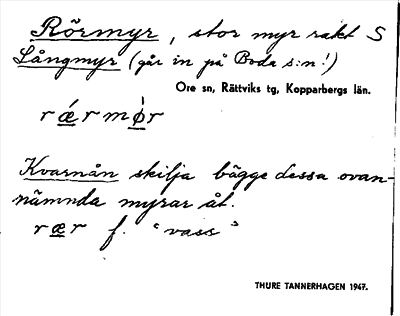 Rörmyr, stor myr rakt S
Långmyr (går in på Boda s:n!)
Ore sn, Rättviks tg, Kopparbergs län.
rǽrmø̀r
Kvarnån skilja bägge dessa ovan-
nämnda myrar åt.
rær f. "vass"
THURE TANNERHAGEN 1947.